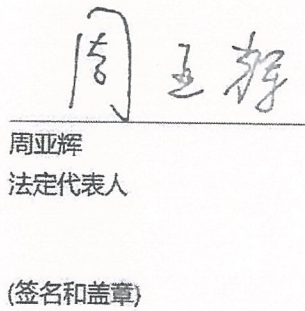 周亚辉
周亚辉
法定代表人
(签名和盖章)